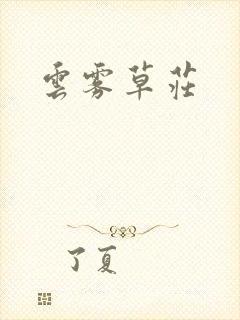 雲雾草莊
了夏